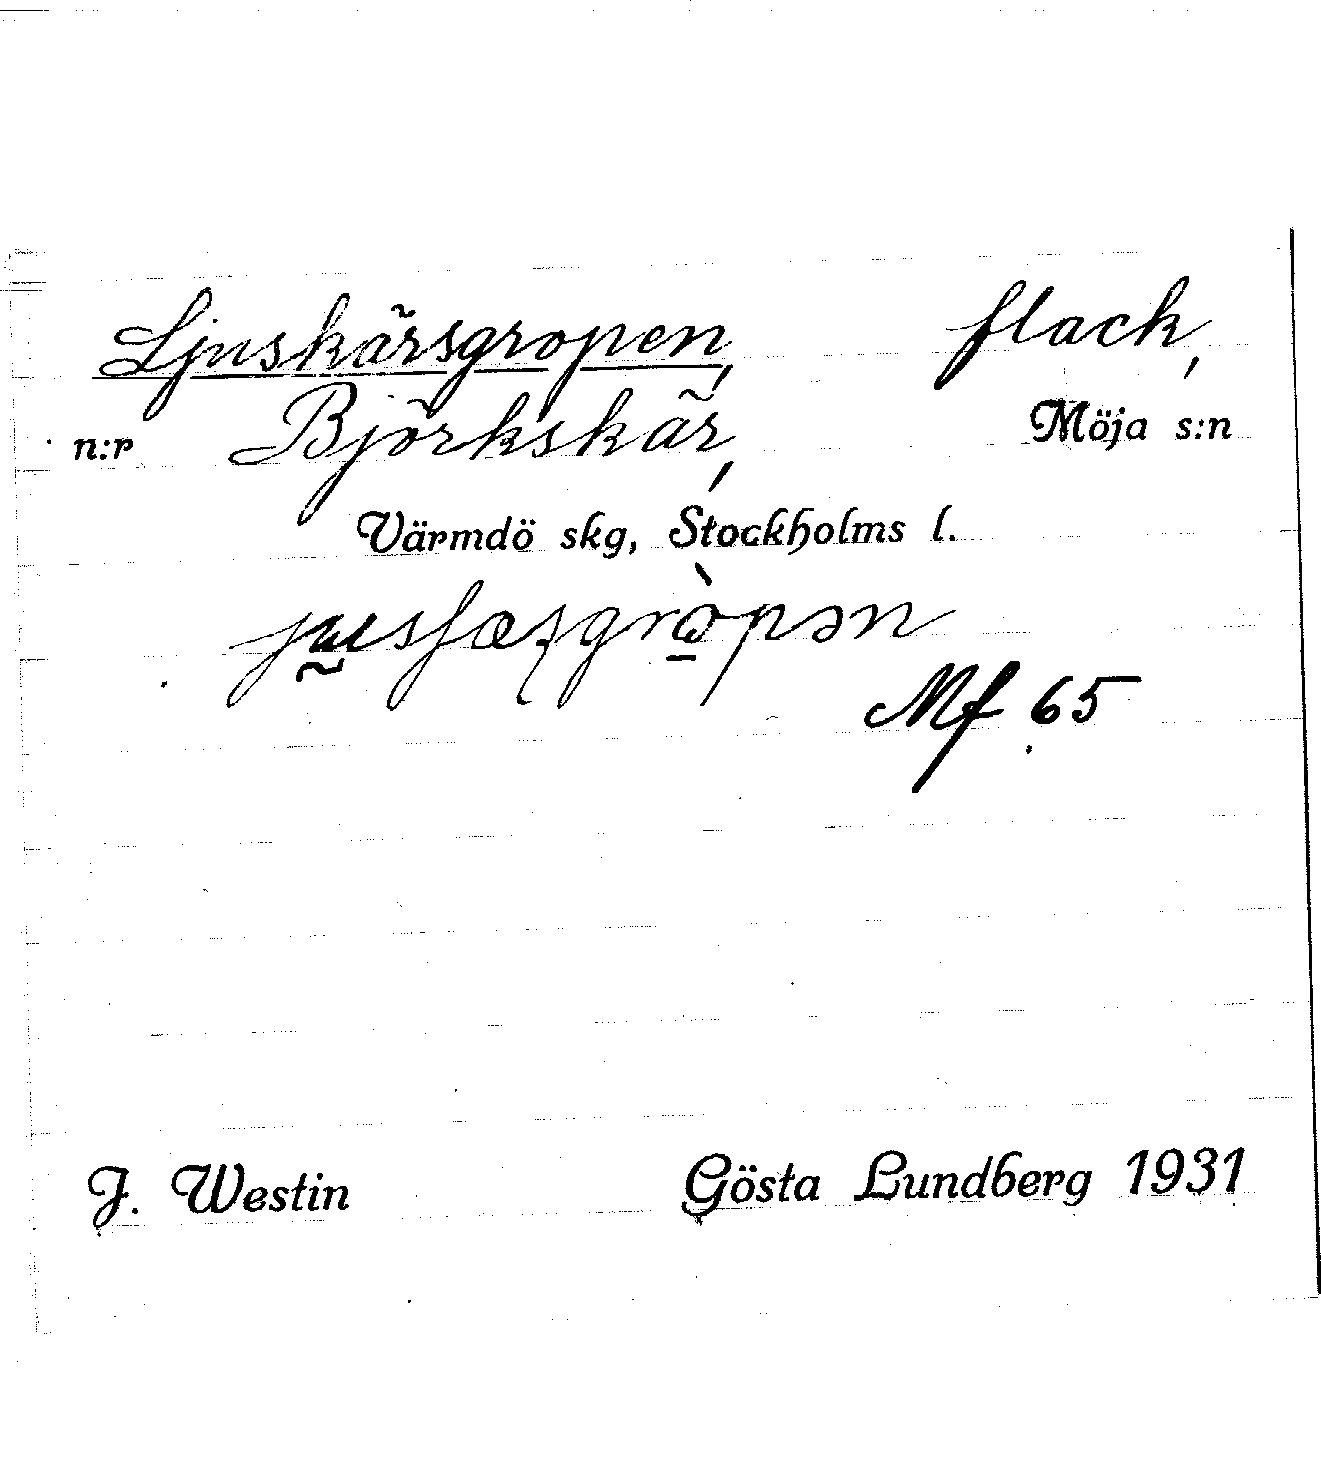 Ljuskärsgropen, flack,
n:r Björkskär, Möja s:n
Värmdö skg, Stockholms l.
Mf 65
J. Westin Gösta Lundberg 1931